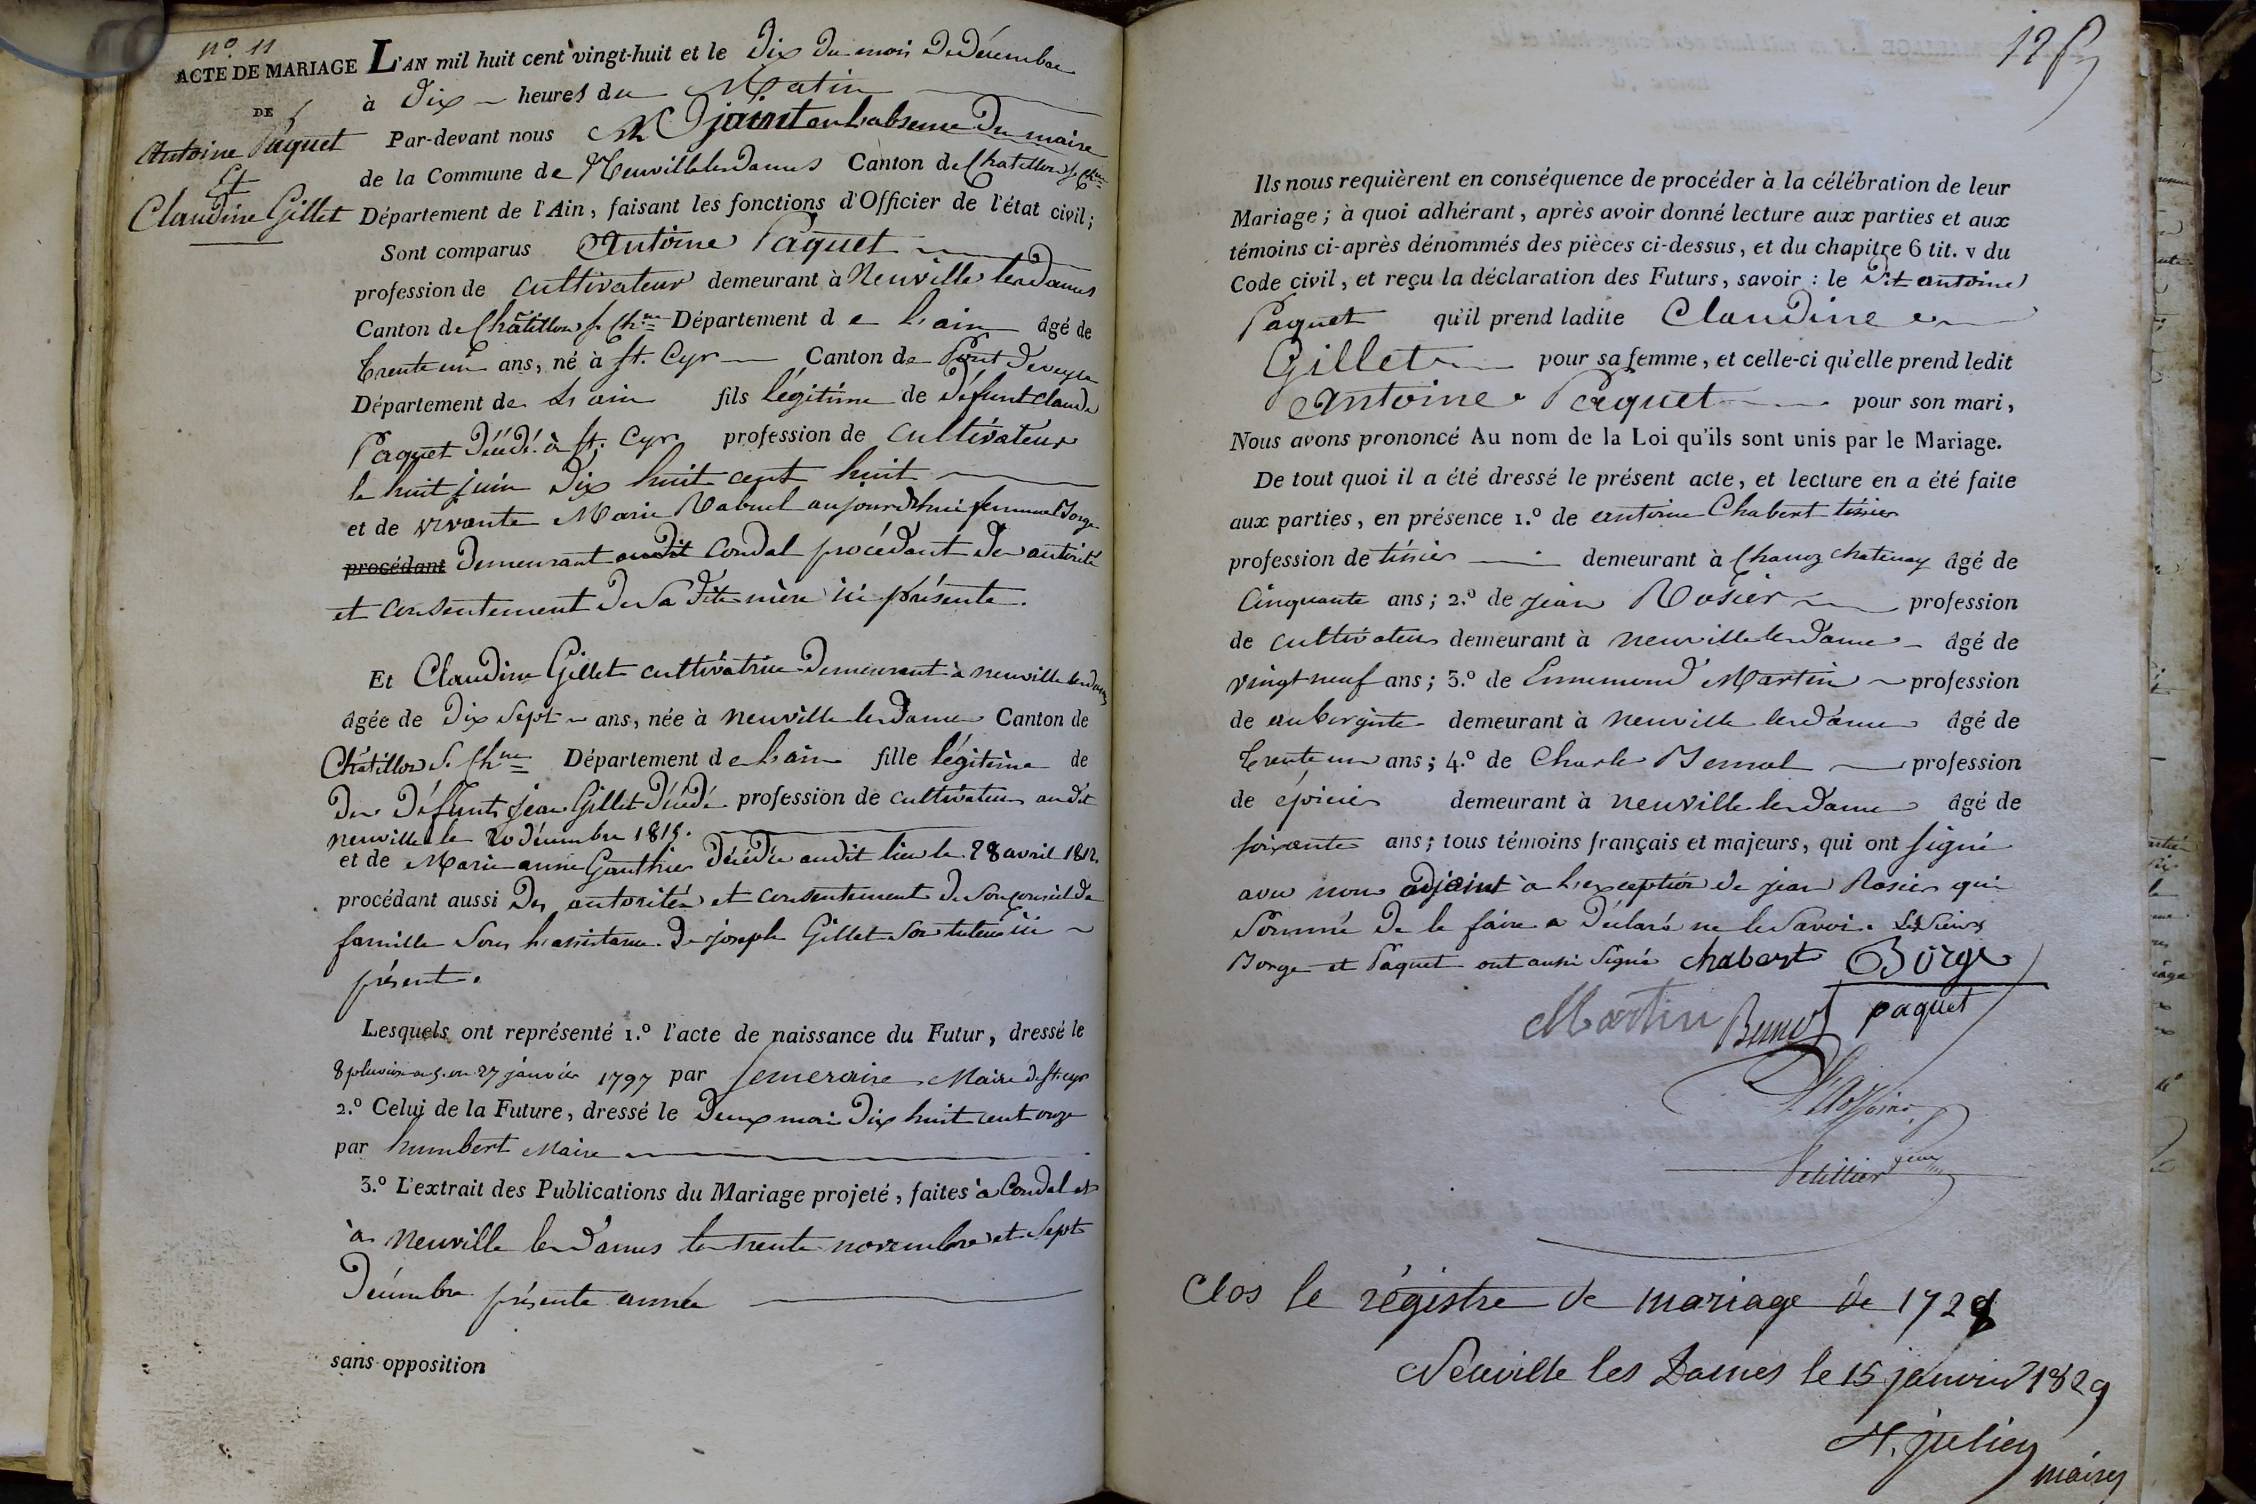 n° 11
ACTE DE MARIAGE
DE
Antoine Paquet
Et
Claudine Gillet
L'AN mil huit cent vingt-huit et le Dix du mois De décembre
à Dix heures du Matin
Par-devant nous adjoint en L'absence Du maire
de la Commune de Neuville les Dames Canton de Chatillon s. Chne
Département de l'Ain, faisant les fonctions d'Officier de l'état civil;
Sont comparus Antoine Paquet
profession de cultivateur demeurant à Neuville les Dames
Canton de Châtillon s. Chne Département de L'ain âgé de
trente un ans, né à St. Cyr Canton de Pont De veyle
Département de L'ain fils légitime de Défunt Claude
Paquet Décédé à St. Cyr profession de cultivateur
le huit juin Dix huit cent huit
et de vivante Marie Rabuel aujourd'hui femme Borge
procédant Demeurant audit Condal procédant De autorité
et consentement De Sa Dite mère ici présente.
Et Claudine Gillet cultivatrice Demeurant à Neuville les Dames
âgée de Dix Sept ans, née à Neuville les Dames Canton de
Châtillon s. Chne Département de L'ain fille légitime de
De Défunts Jean Gillet Décédé profession de cultivateur audit
Neuville le 20 Décembre 1815.
et de Marie anne Gauthier Décédée audit lieu le 28 avril 1812
procédant aussi Des autorités et consentement De Son Conseil De
famille Sous L'assistance De joseph Gillet Son tuteur ici
présent.
Lesquels ont représenté 1.º l'acte de naissance du Futur, dressé le
8 pluviose an 5. ou 27 janvier 1797 par Maire De St. cyr
2.º Celui de la Future, dressé le Deux mai Dix huit cent onze
par humbert Maire
3.º L'extrait des Publications du Mariage projeté, faites à Condal et
à Neuville les Dames les trente novembre et Sept
Décembre présente année
sans opposition
Ils nous requièrent en conséquence de procéder à la célébration de leur
Mariage; à quoi adhérant, après avoir donné lecture aux parties et aux
témoins ci-après dénommés des pièces ci-dessus, et du chapitre 6 tit. v du
Code civil, et reçu la déclaration des Futurs, savoir : le Dit antoine
Paquet qu'il prend ladite Claudine
Gillet pour sa femme, et celle-ci qu'elle prend ledit
Antoine Paquet pour son mari,
Nous avons prononcé Au nom de la Loi qu'ils sont unis par le Mariage.
De tout quoi il a été dressé le présent acte, et lecture en a été faite
aux parties, en présence 1.º de antoine Chabert tissier
profession de tissier demeurant à Chanoz chatenay âgé de
Cinquante ans; 2.º de jean Rosier profession
de cultivateur demeurant à Neuville les Dames âgé de
vingt neuf ans; 3.º de Ennemond Martin profession
de aubergiste demeurant à Neuville les Dames âgé de
trente un ans; 4.º de Charle Bernol profession
de épicier demeurant à Neuville les Dames âgé de
soixante ans; tous témoins français et majeurs, qui ont signé
avec nous adjoint à L'exception De jean Rosier qui
Sommé De le faire a Déclaré ne le Savoir. Les Sieurs
Borge et Paquet ont aussi Signé chabert Borge
Martin paquet
Clos le régistre de mariage de 1728
Neuville les Dames le 15 janvier 1829
julien
maire